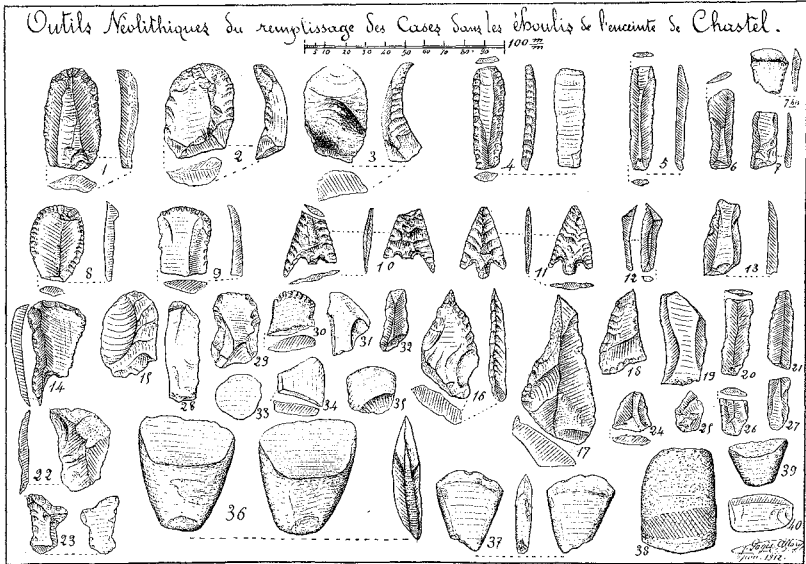 Outils Néolithiques du remplissage des Cases dans les éboulis de l'enceinte de Chastel.
5 10 20 30 40 50 60 70 80 90 100 m/m
1 2 3 4 5 6 7 bis
7
8 9 10 11 12 13
14 15 28 29 30 31 32 16 17 18 19 20 21
33 34 35 24 25 26 27
22 36 37 38 39
23 40
Juin. 1912.